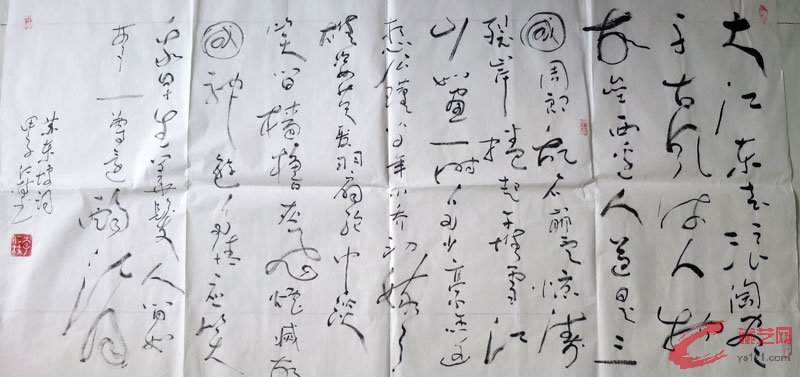 大江东去浪淘尽
千古风流人物
故垒西边人道是三
國周郎乱石崩云惊涛
裂岸卷起千堆雪江
山如画一时多少豪杰遥
想公瑾当年小乔初嫁了
雄姿英发羽扇纶巾谈
笑间樯橹灰飞烟灭故
國神遊多情应笑
我早生华髪人间如
梦一尊还酹江月
苏东坡词
甲子
艺网